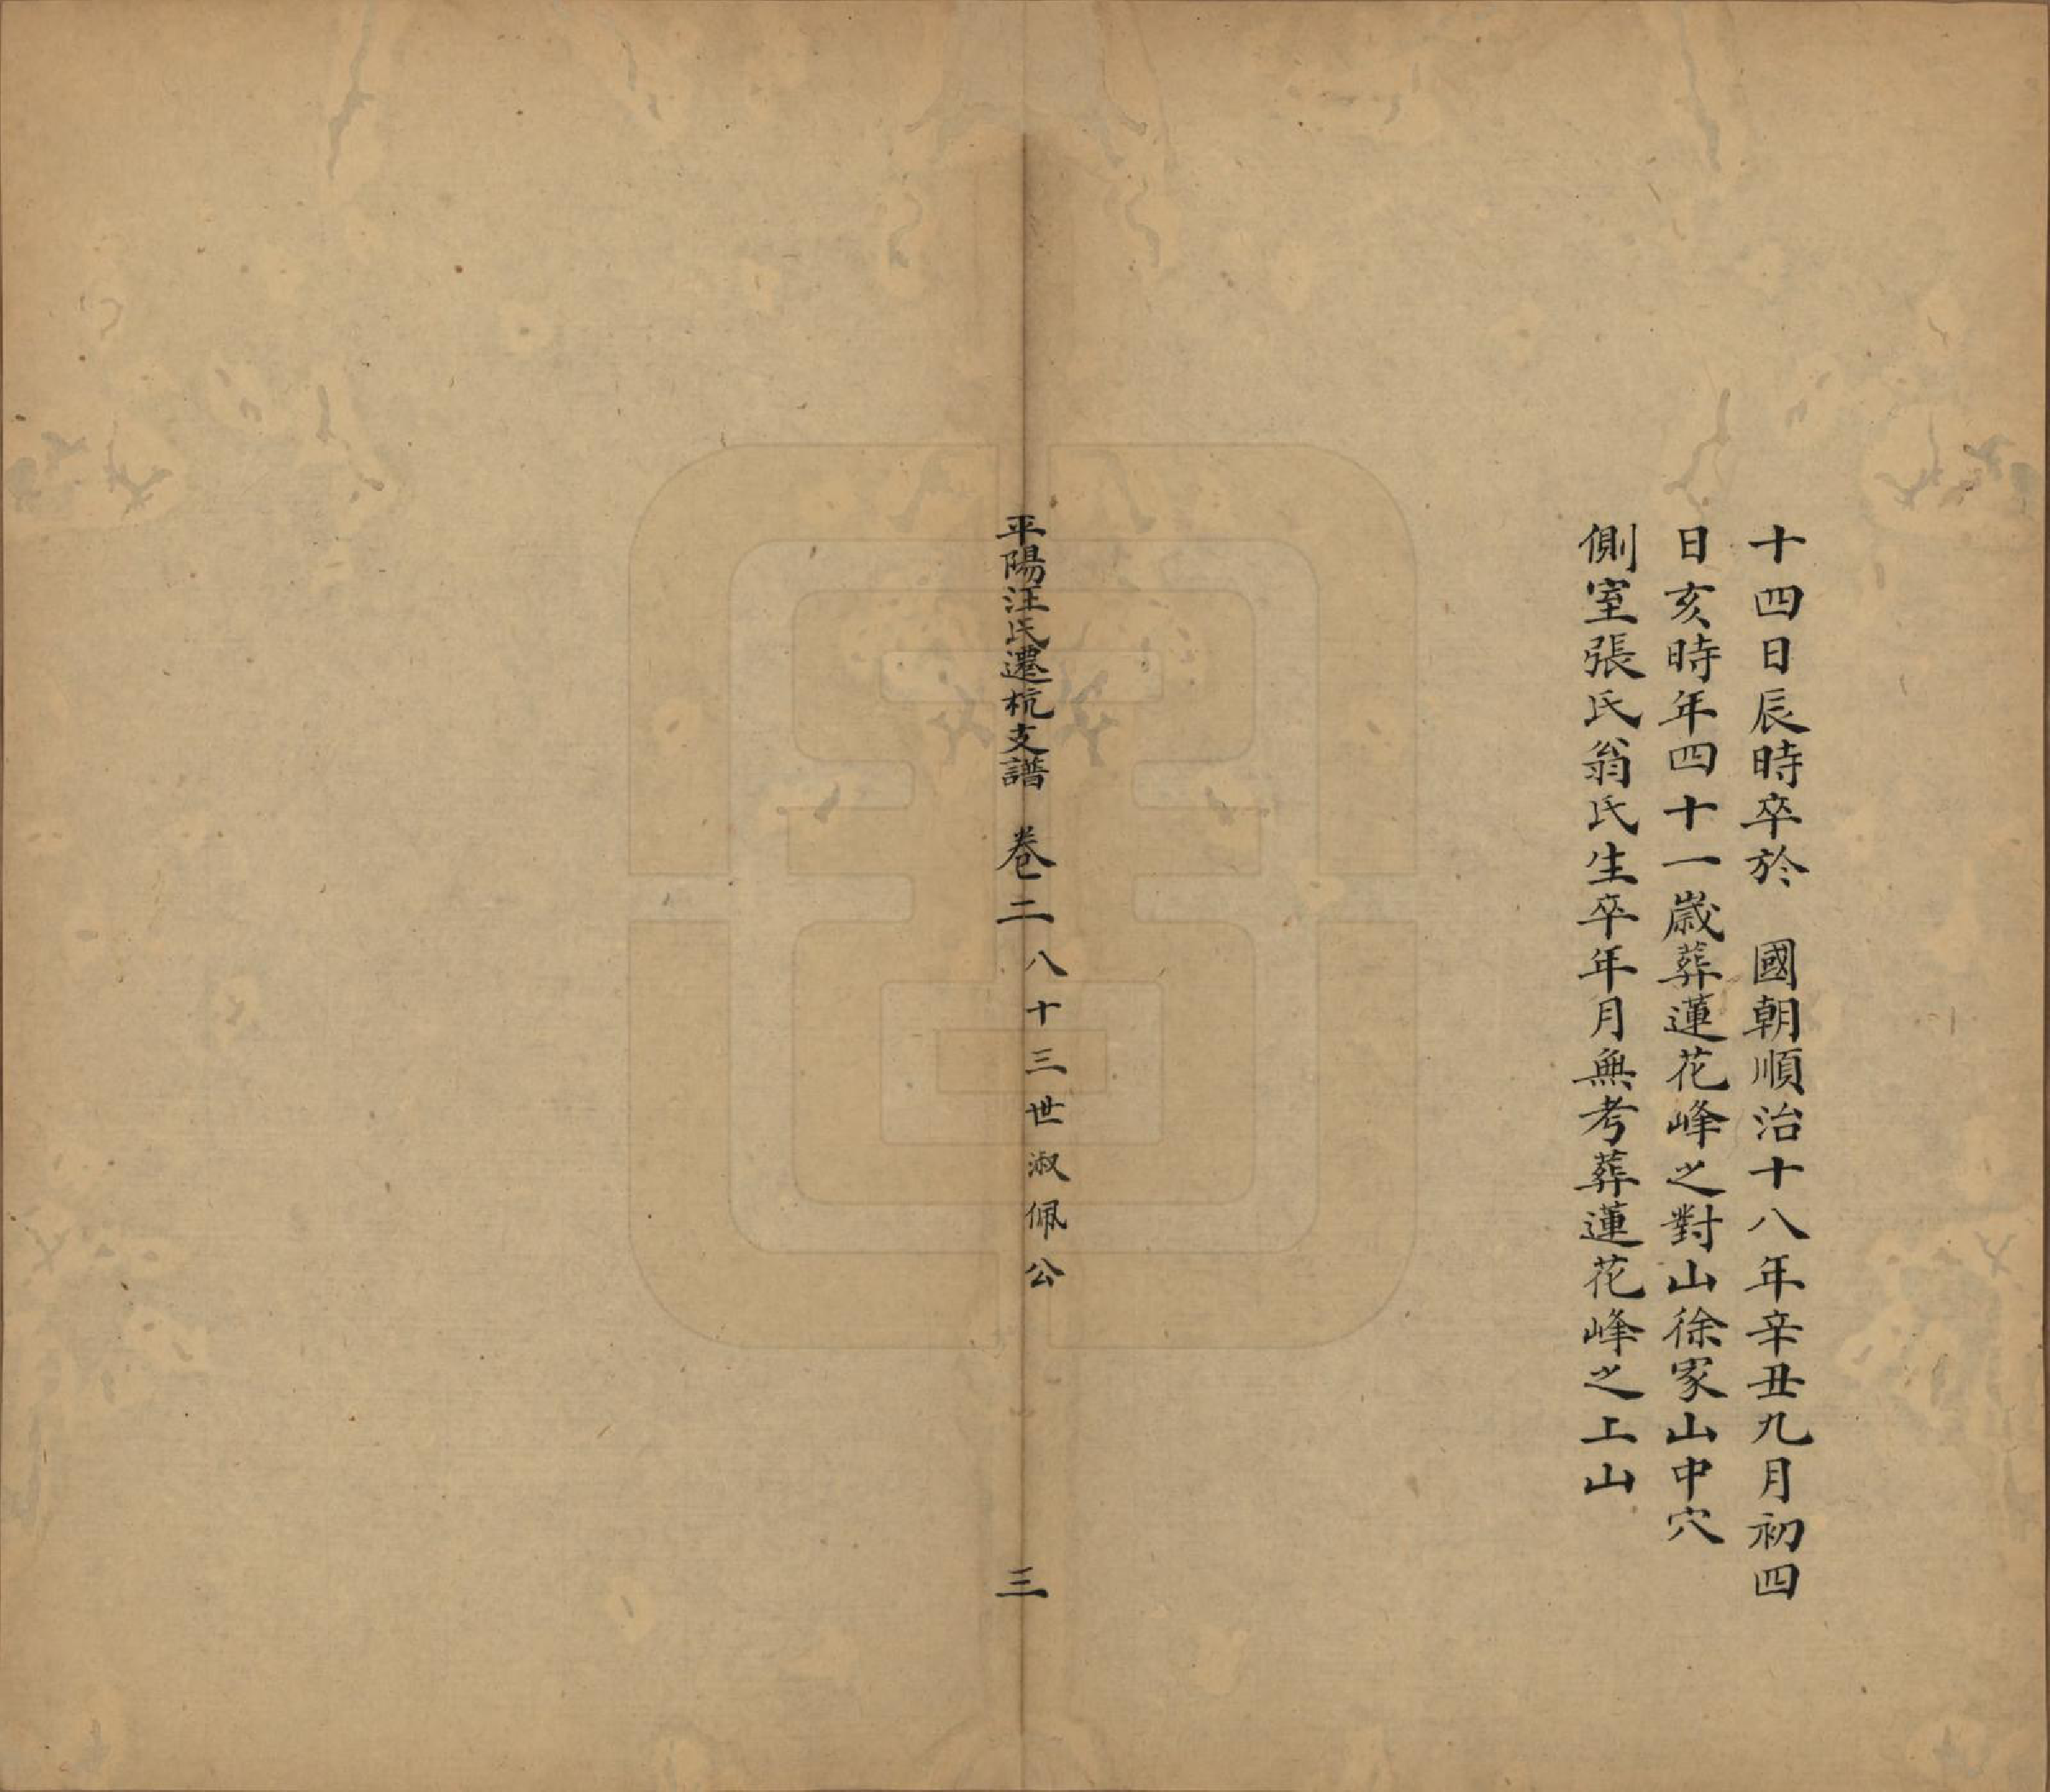 十四日辰時卒於　國朝順治十八年辛丑九月初四
日亥時年四十一歲葬蓮花峰之對山徐冢山中穴
側室張氏翁氏生卒年月無考葬蓮花峰之上山
平陽汪氏遷杭支譜　卷二　八十三世淑佩公　三